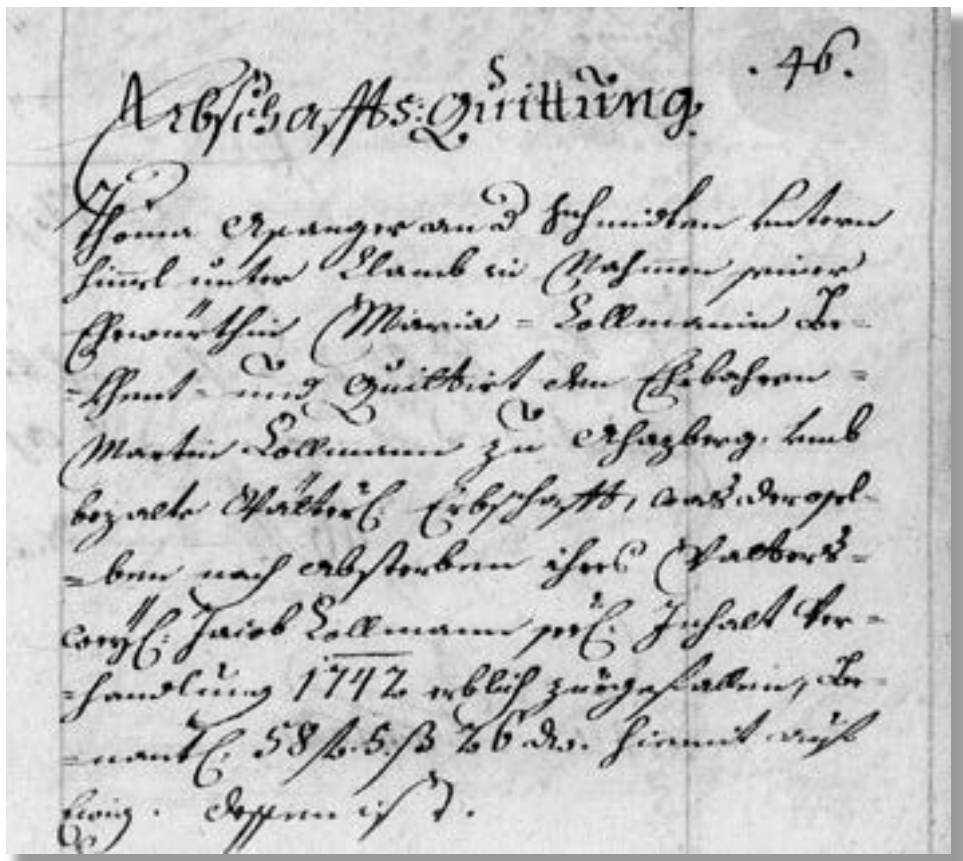 . 46.
Erbschaffts: Quittung.
Thoma Aspanger an d Schmidten untern
himel unter Clamb in Nahmen seiner
Ehewürthin Maria = Lollmanin Be-
-khent- und Quittirt den Ehrbahren =
Martin Lollmann zu umb
bezalte Vätterl: Erbschafft, was dersel-
=ben nach absterben ihres Vatters=
weyl: Jacob Lollmann seel: Inhalt Ver-
=handlung 1742 erblich zuegefallen, Be-
=nantl: 58 f. 5. ß 26 d. hiemit auf
Ewig. dessen ist